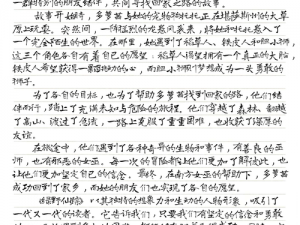 一群特别的朋友结伴，共同寻找回家之路的故事。
故事开始时，多萝茜与她的宠物狗托托正在堪萨斯的大草
原上玩耍。突然间，一阵猛烈的龙卷风袭来，将她和托托卷入了
一个完全陌生的世界。在那里，她遇到了稻草人、铁皮人和胆小狮，
这三个角色各自有着自己的愿望：稻草人渴望拥有一个真正的大脑，
铁皮人希望获得一颗跳动的心，而胆小狮则梦想成为一头勇敢的
狮子。
为了各自的目标，也为了帮助多萝茜找到回家的路，他们结
伴而行，踏上了充满未知与危险的旅程。他们穿越了森林，翻越
了高山，渡过了急流，一路上克服了重重困难，也收获了深厚的
友谊。
在旅途中，他们遇到了各种奇异的生物和事件，有善良的巫
师，也有邪恶的女巫。每一次的冒险都让他们更加了解彼此，也
让他们更加坚定自己的信念。最终，在南方女巫的帮助下，多萝茜
成功回到了家乡，而她的朋友们也实现了各自的愿望。
《绿野仙踪》以其独特的想象力和生动的人物形象，吸引了
一代又一代的读者。它告诉我们，只要我们有坚定的信念和勇敢